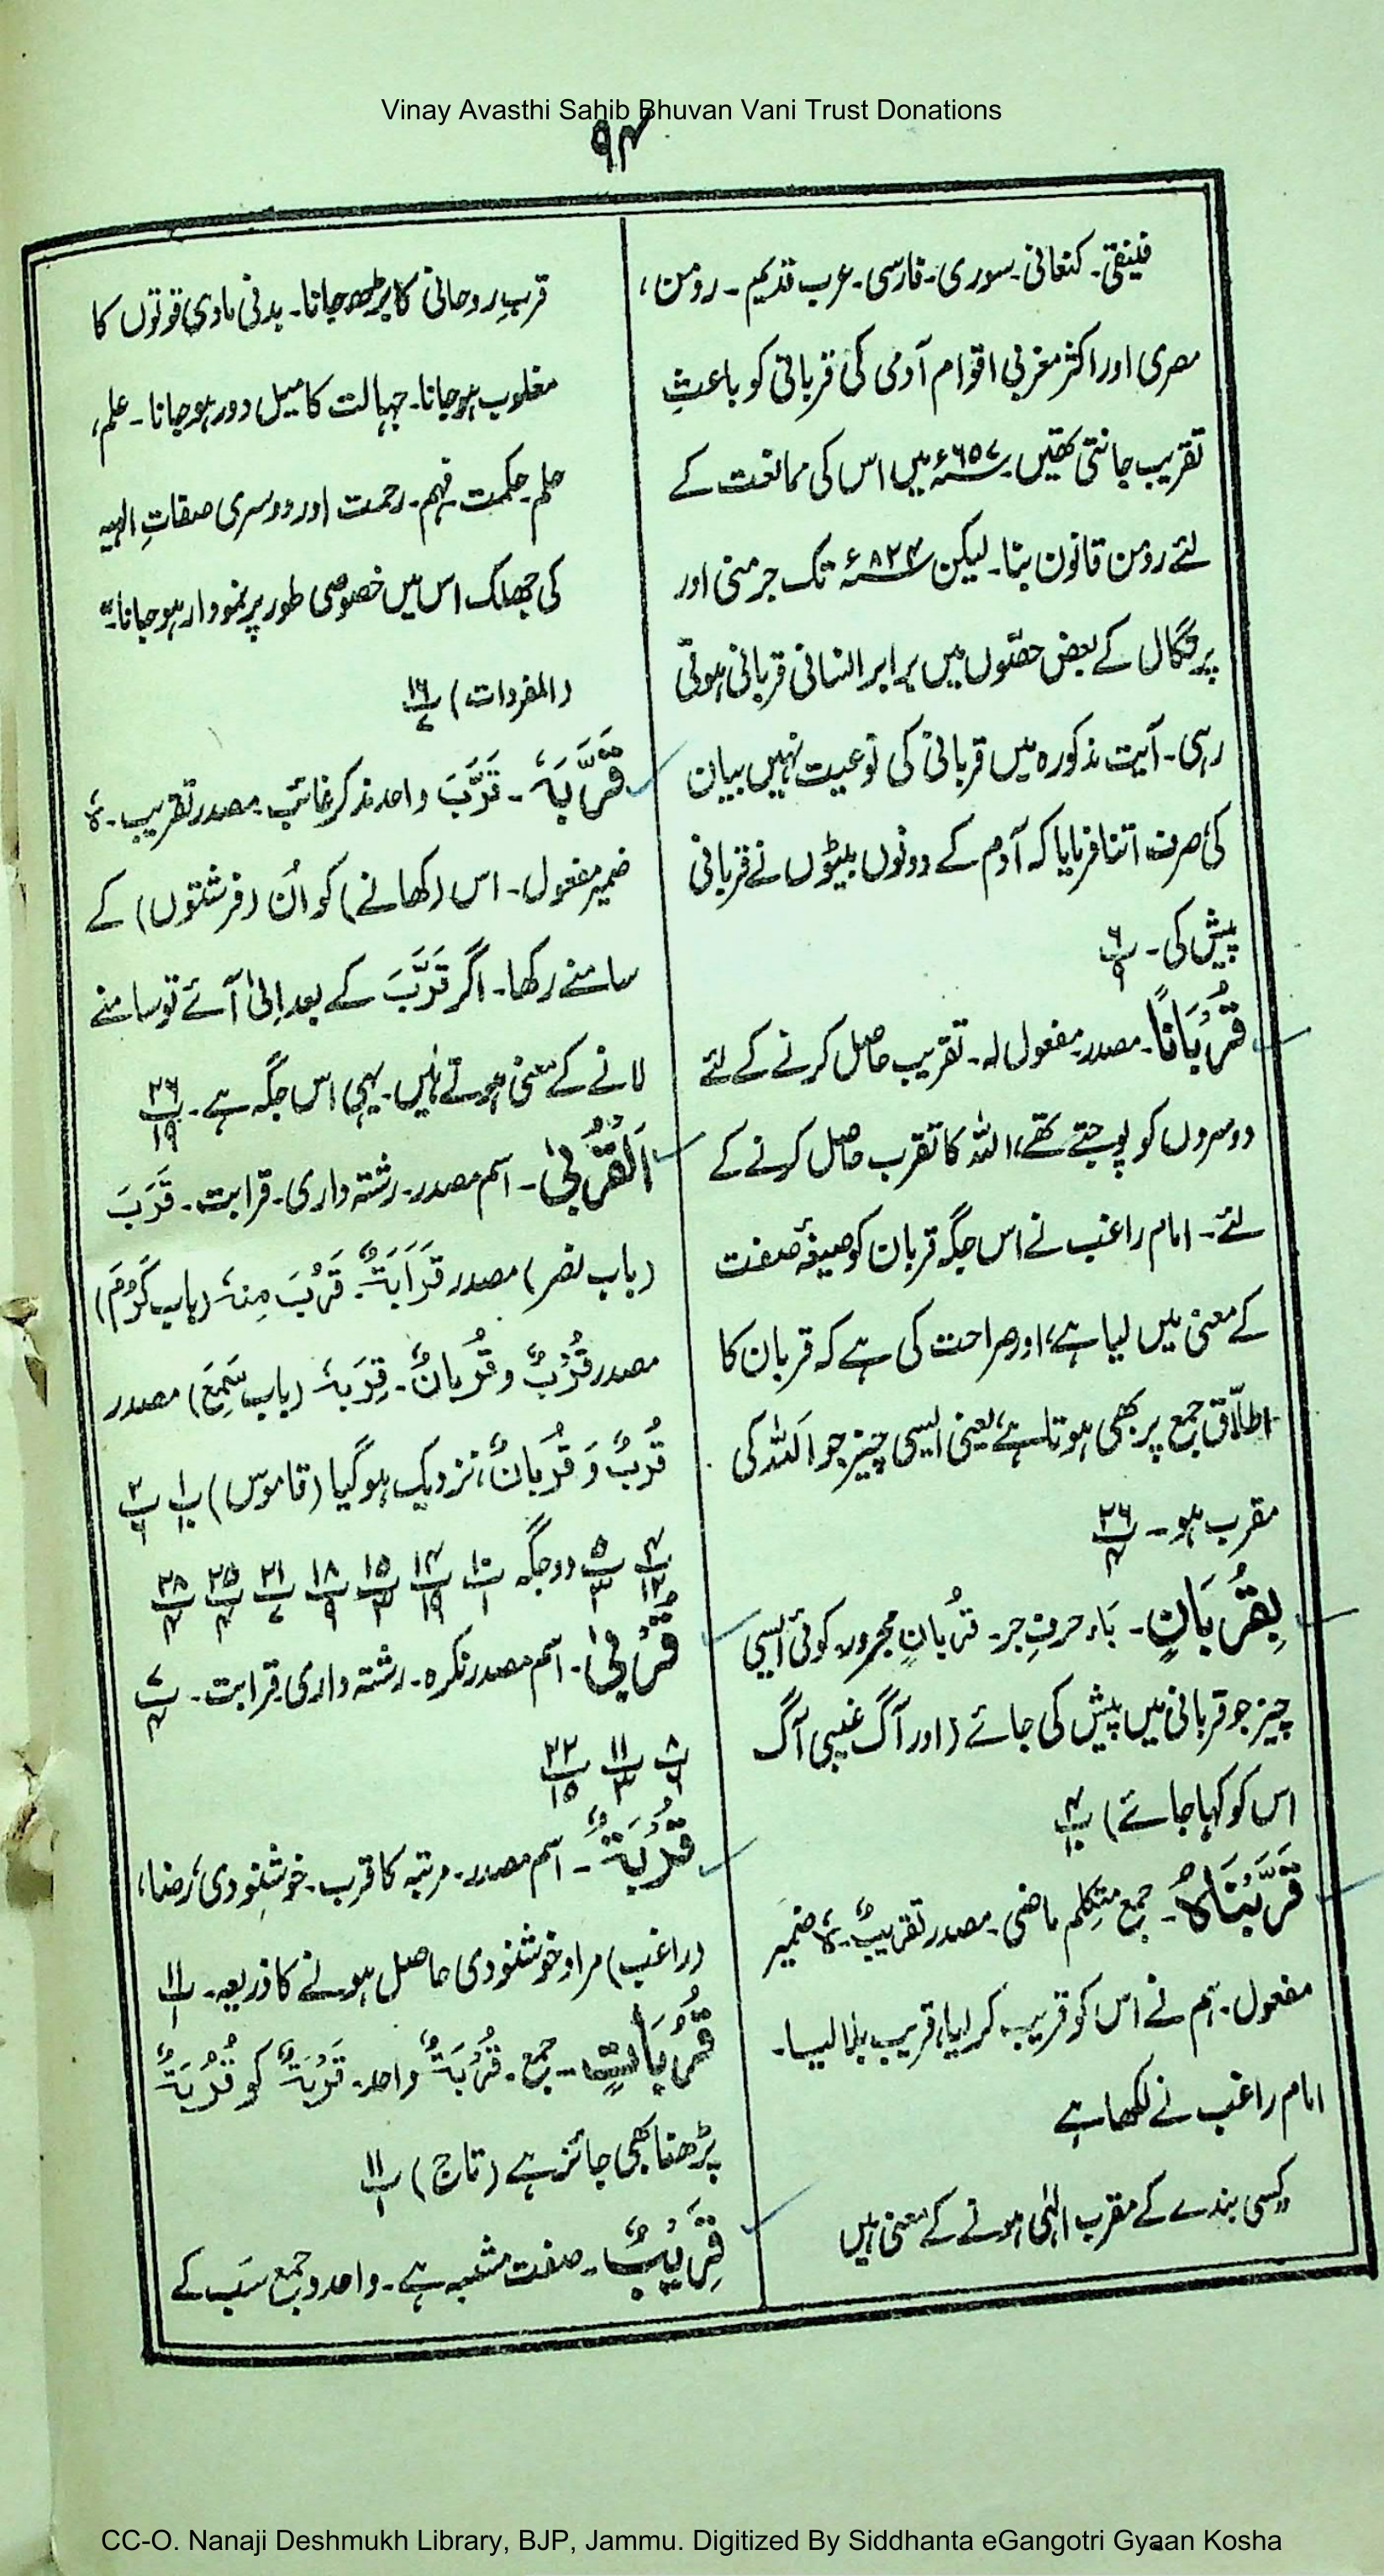 Vinay Avasthi Sahib Bhuvan Vani Trust Donations
۹۴
فینقی۔ کنعانی۔ سوری۔ فارسی۔ عرب قدیم۔ رومن،
مصری اور اکثر مغربی اقوام آدمی کی قربانی کو باعثِ
تقریب جانتی تھیں۔ ۶۵۷ء میں اس کی ممانعت کے
لئے رومن قانون بنا۔ لیکن ۸۲۴ء تک جرمنی اور
پرتگال کے بعض حصّوں میں برابر انسانی قربانی ہوتی
رہی۔ آیت مذکورہ میں قربانی کی نوعیت نہیں بیان
کی صرف اتنا فرمایا کہ آدم کے دونوں بیٹوں نے قربانی
پیش کی۔ پ۶/۹
قُرْبَانًا۔ مصدر مفعول لہ۔ تقریب حاصل کرنے کے لئے
دوسروں کو پوجتے تھے، اللہ کا تقرب حاصل کرنے کے
لئے۔ امام راغب نے اس جگہ قربان کو صیغۂ صفت
کے معنی میں لیا ہے، اور صراحت کی ہے کہ قربان کا
اطلاق جمع پر بھی ہوتا ہے، یعنی ایسی چیز جو اَللہ کی
مقرب ہو۔ پ۲۶/۴
بِقُرْبَانٍ۔ بَاء حرفِ جر۔ قُرْبَانٍ مجرور۔ کوئی ایسی
چیز جو قربانی میں پیش کی جائے (اور آگ غیبی آگ
اس کو کھا جائے) پ۴/۱۰
قَرَّبْنَاهُ۔ جمع متکلم ماضی۔ مصدر تقریبٌ۔ هُ ضمیر
مفعول۔ ہم نے اس کو قریب کر لیا، قریب بلا لیا۔
امام راغب نے لکھا ہے
"کسی بندے کے مقرب الٰہی ہونے کے معنی ہیں
قربِ روحانی کا بڑھ جانا۔ بدنی مادی قوتوں کا
مغلوب ہو جانا۔ جہالت کا میل دور ہو جانا۔ علم،
حلم۔ حکمت۔ فہم۔ رحمت اور دوسری صفاتِ الہیہ
کی جھلک اس میں خصوصی طور پر نمودار ہو جانا۔"
(المفردات) پ۱۶/۷
قَرَّبَهٗ۔ قَرَّبَ واحد مذکر غائب۔ مصدر تقریب۔ هٗ
ضمیر مفعول۔ اس (کھانے) کو اُن (فرشتوں) کے
سامنے رکھا۔ اگر قَرَّبَ کے بعد اِلیٰ آئے تو سامنے
لانے کے معنی ہوتے ہیں۔ یہی اس جگہ ہے۔ پ۲۶/۱۹
اَلْقُرْبیٰ۔ اسم مصدر۔ رشتہ داری۔ قرابت۔ قَرَبَ
(باب نصر) مصدر قَرَابَۃٌ۔ قَرُبَ مِنْہُ (باب کَرُمَ)
مصدر قُرْبٌ و قُرْبَانٌ۔ قَرِبَہٗ (باب سَمِعَ) مصدر
قُرْبٌ وَ قُرْبَانٌ، نزدیک ہوگیا (قاموس) پ۱/۱۰ پ۲/۶
پ۴/۱۲ پ۵/۳ دو جگہ پ۱۰/۱ پ۱۴/۱۹ پ۱۵/۳ پ۱۸/۹ پ۲۱/۷ پ۲۵/۴ پ۲۸/۴
قُرْبیٰ۔ اسم مصدر نکرہ۔ رشتہ داری قرابت۔ پ۷/۴
پ۸/۶ پ۱۱/۳ پ۲۲/۱۵
قُرْبَۃٌ۔ اسم مصدر۔ مرتبہ کا قرب۔ خوشنودی، رضا،
(راغب) مراد خوشنودی حاصل ہونے کا ذریعہ۔ پ۱۱/۱
قُرُبَاتٍ۔ جمع۔ قُرْبَۃٌ واحد۔ قُرْبَۃٌ کو قُرُبَۃٌ
پڑھنا بھی جائز ہے (تاج) پ۱۱/۱
قَرِیْبٌ۔ صفت مشبہ ہے۔ واحد و جمع سب کے
CC-O. Nanaji Deshmukh Library, BJP, Jammu. Digitized By Siddhanta eGangotri Gyaan Kosha